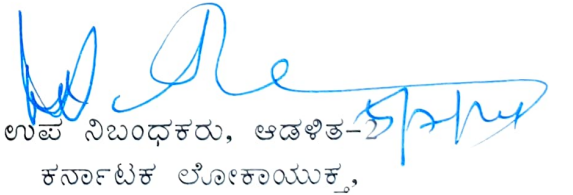 ಉಪ ನಿಬಂಧಕರು, ಆಡಳಿತ-2
ಕರ್ನಾಟಕ ಲೋಕಾಯುಕ್ತ,